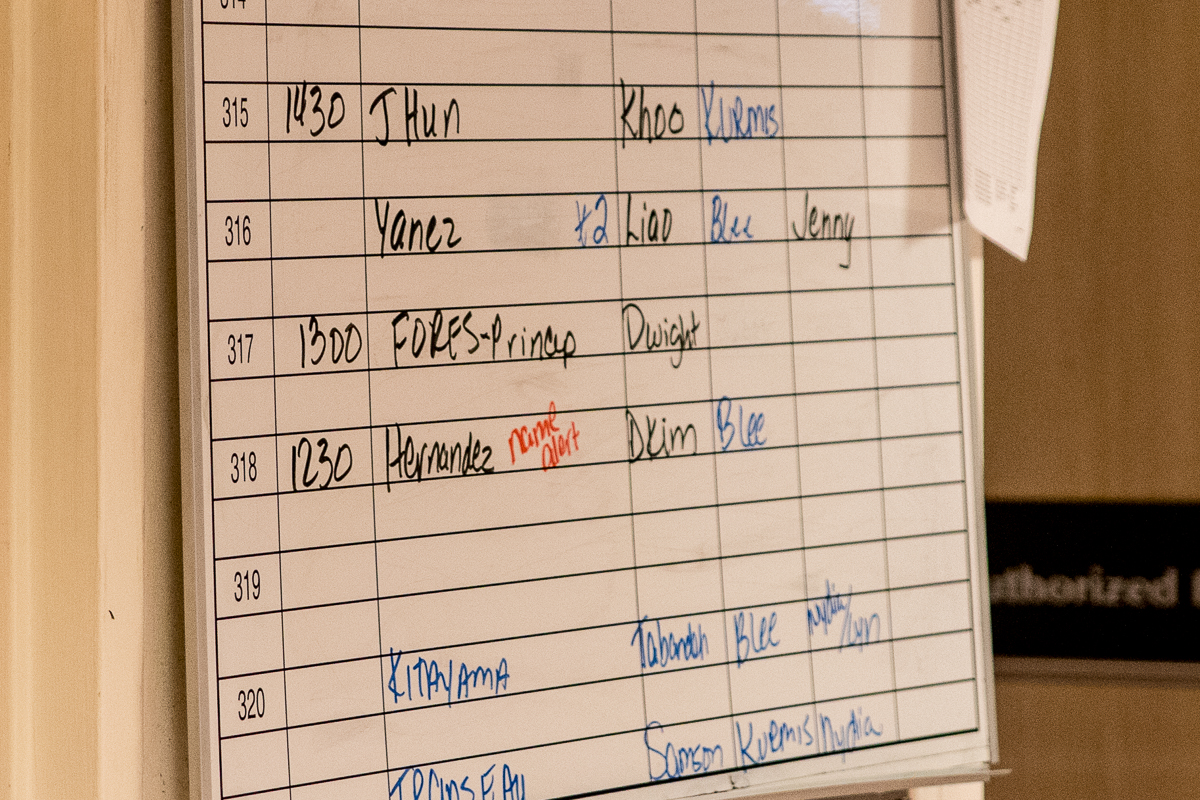 314
315 1430 J Hun Khoo KURMIS
316 Yanez #2 Liao Blee Jenny
317 1300 FORES-Princip Dwight
318 1230 Hernandez name alert DKim Blee
319
KITAYAMA Tabandeh Blee Nydia/Lyn
320
Samson KURMIS Nydia
uthorized